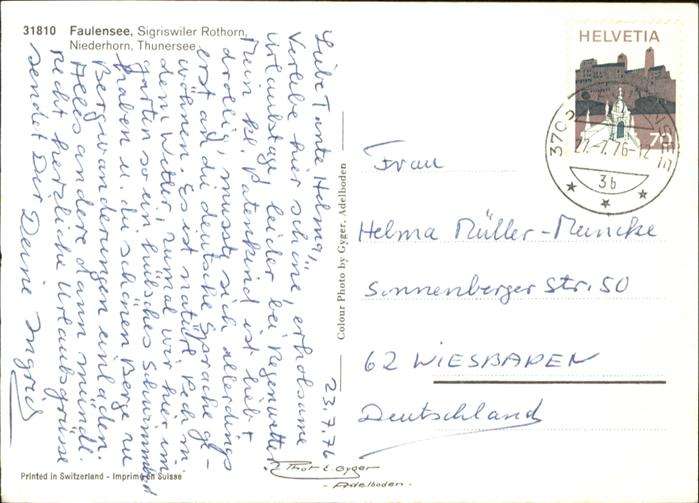 31810 Faulensee, Sigriswiler Rothorn,
Niederhorn, Thunersee
23.7.76
Liebe Tante Helma,
Verlebe hier schöne, erholsame
Urlaubstage, leider bei Regenwetter.
Mein kl. Patenkind ist lieb +
drollig, musste sich allerdings
erst an die deutsche Sprache ge-
wöhnen. Es ist natürl. Pech m.
dem Wetter, zumal wir hier im
garten so ein hübsches Schwimmbad
haben u. die schönen Berge zu
Bergwanderungen einladen.
Alles andere dann mündl.
recht herzliche Urlaubsgrüsse
sendet Dir Deine Ingrid
Colour Photo by Gyger, Adelboden
HELVETIA
70
3702
22.-7.76-12
3b
Frau
Helma Müller-Meincke
Sonnenberger Str. 50
62 WIESBADEN
Deutschland
Phot E. Gyger
- Adelboden -
Printed in Switzerland - Imprimé en Suisse